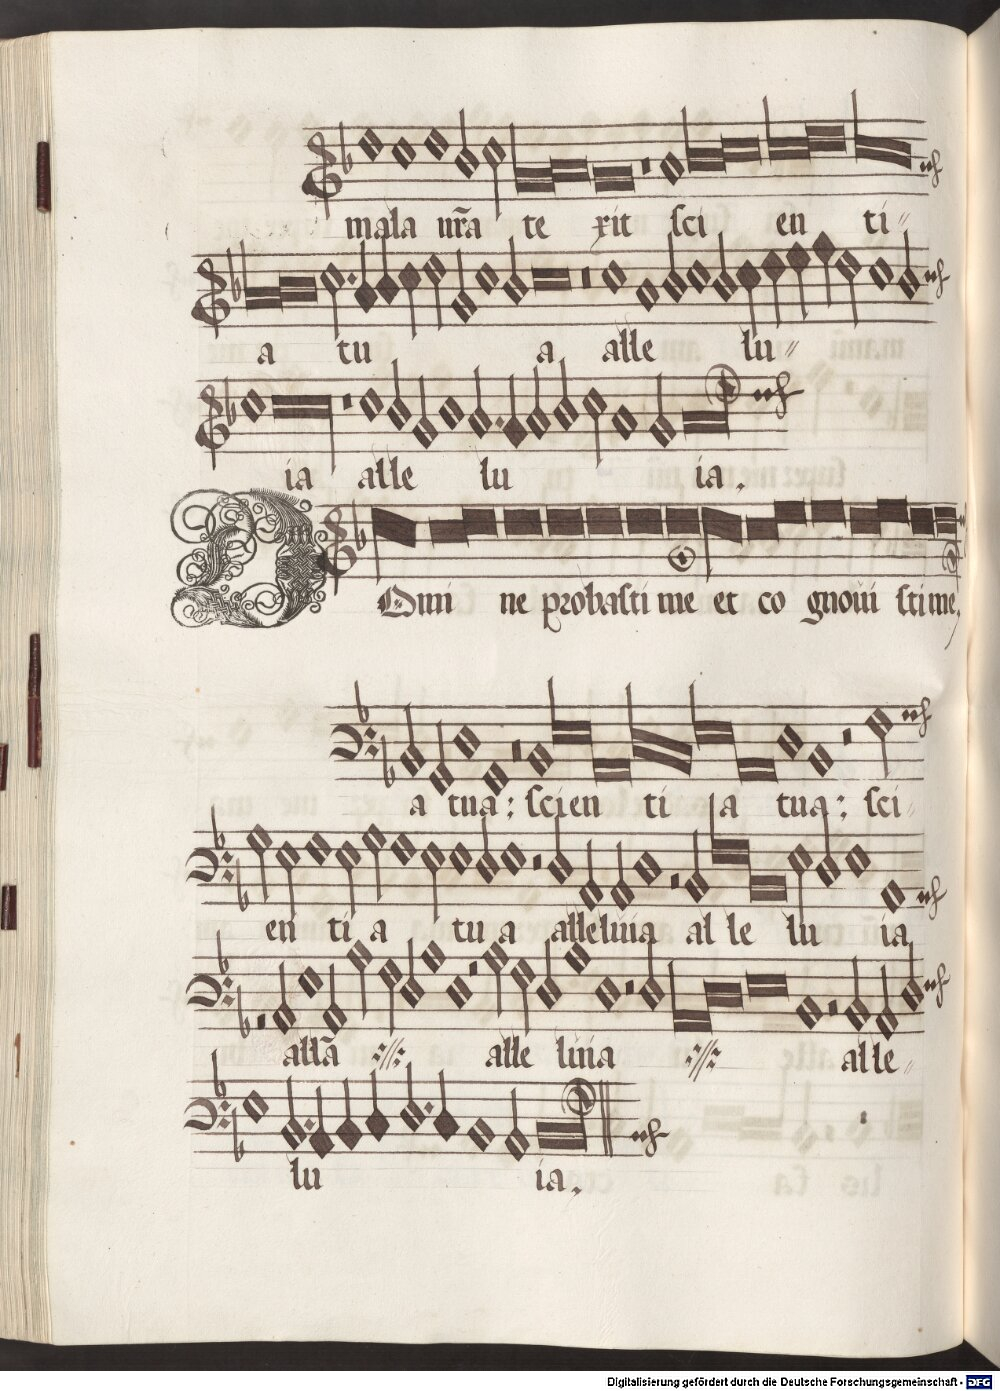 mala nr̃a te xit sci en ti〃
a tu a alle lu〃
ia alle lu ia.
Domi ne probasti me et co gnoui sti me,
a tua: scien ti ia tua: sci〃
en ti a tu a alleluia al le lu ia
allã alle luia alle〃
lu ia.
Digitalisierung gefördert durch die Deutsche Forschungsgemeinschaft - DFG